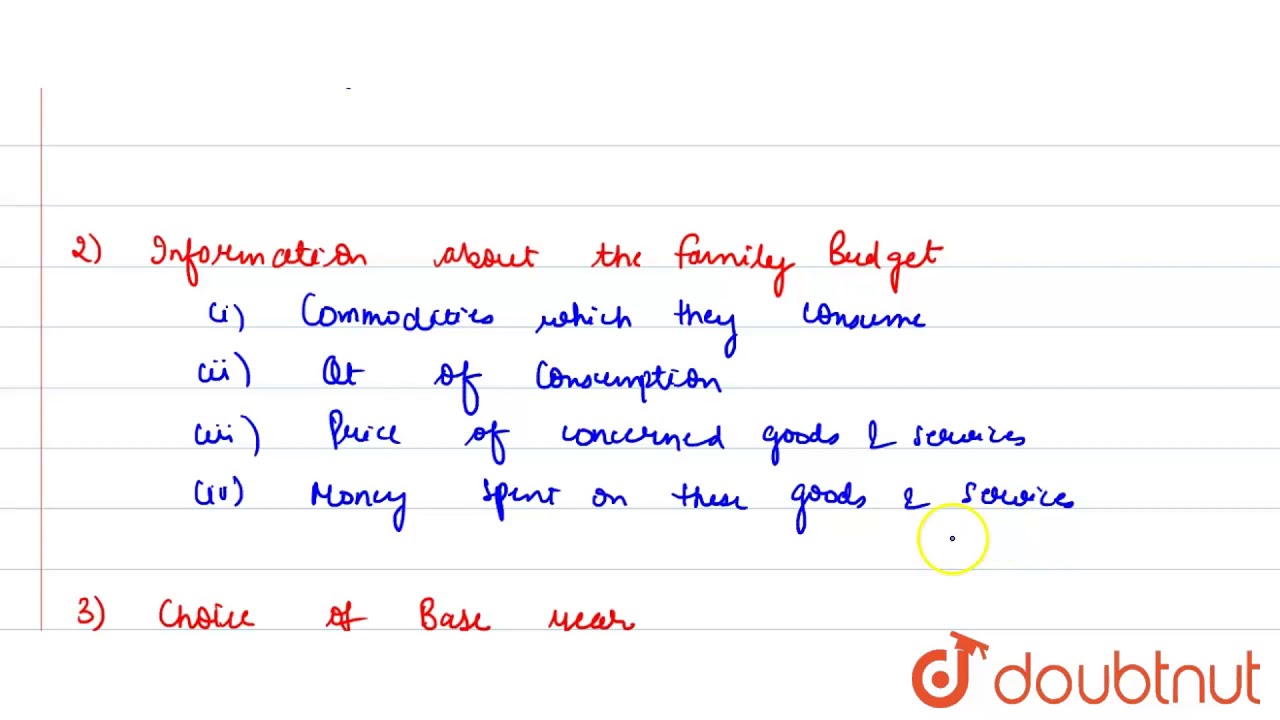 2) Information about the Family Budget
(i) Commodities which they consume
(ii) Qt of Consumption
(iii) Price of concerned goods & services
(iv) Money spent on these goods & services
3) Choice of Base year
doubtnut